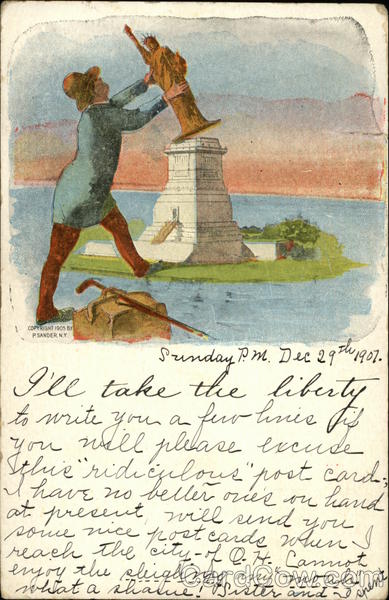 COPYRIGHT 1905 BY
P. SANDER, N.Y.
Sunday P.M. Dec 29th 1907.
I'll take the liberty
to write you a few lines if
you will please excuse
this "ridiculous" post card.
I have no better ones on hand
at present, will send you
some nice postcards when I
reach the city of O. H. Cannot
enjoy the sleigh
what a shame! Sister and I
CardCow.com